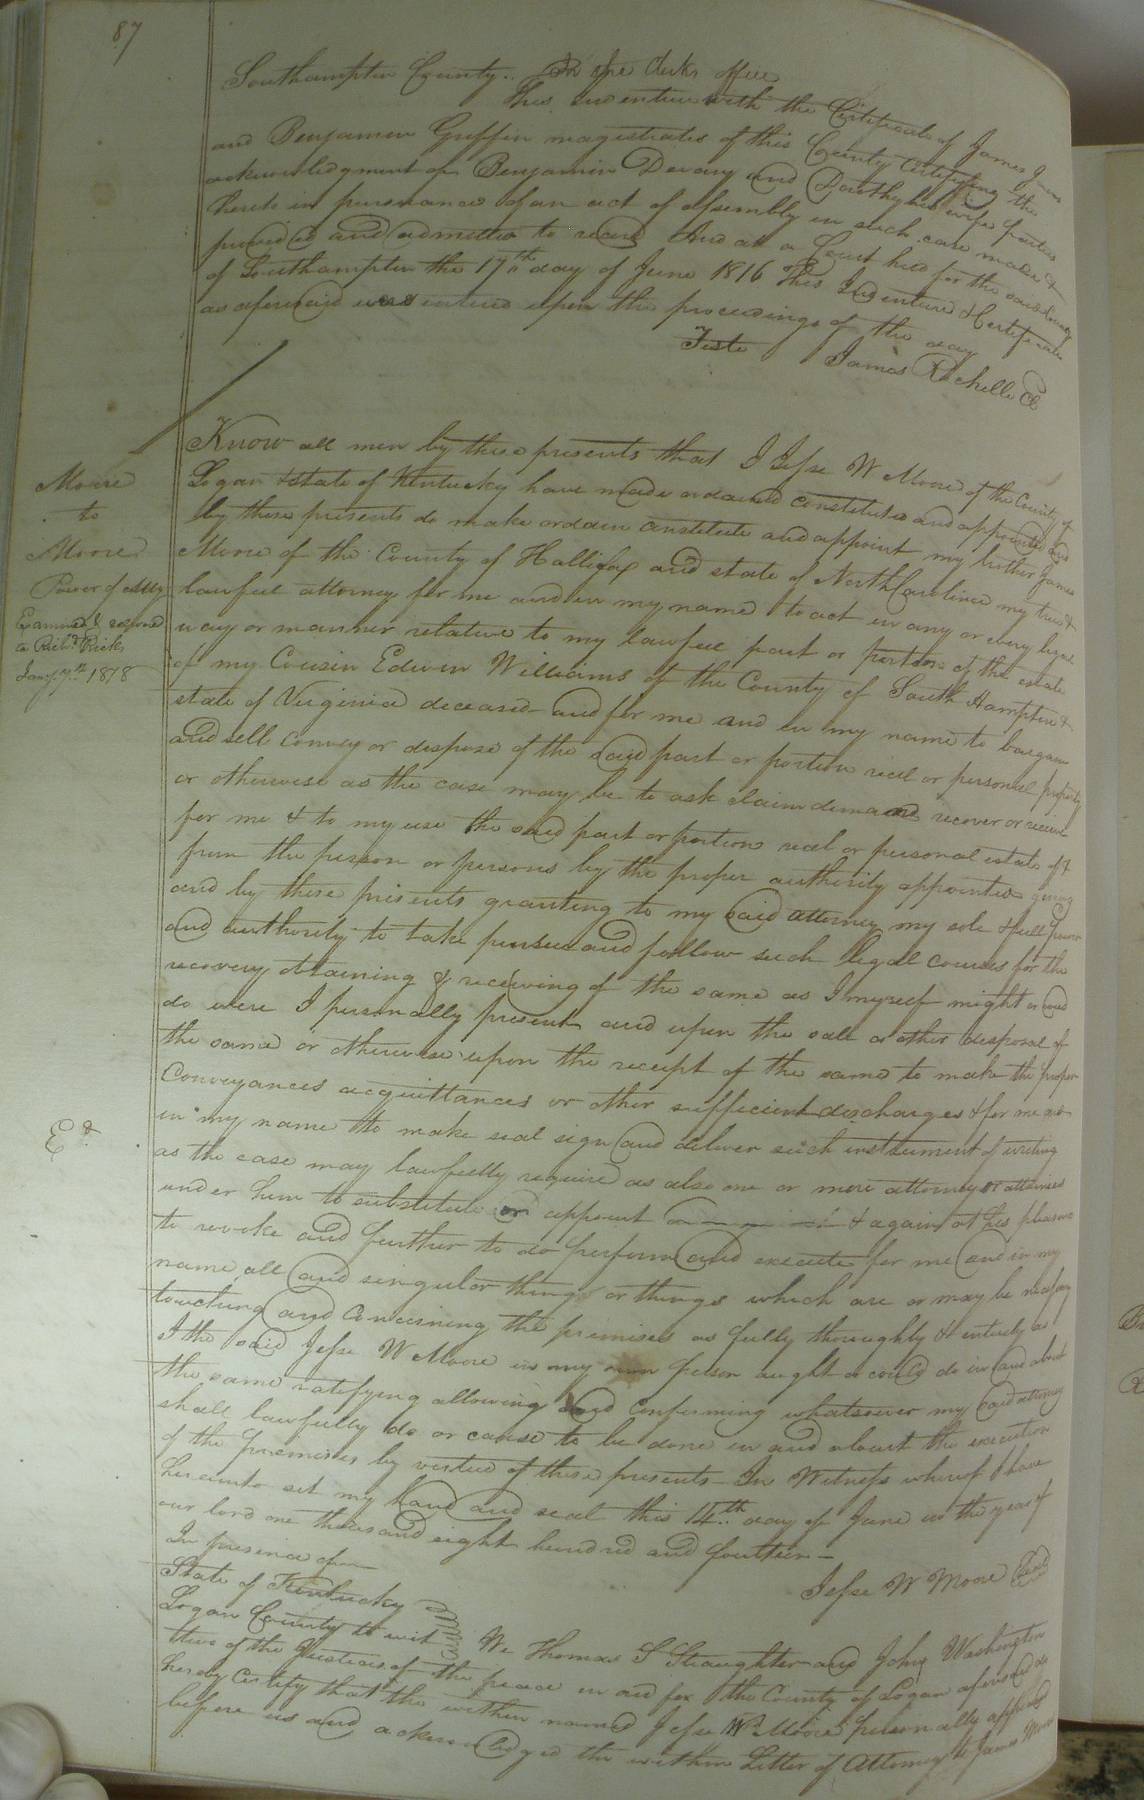 87
Southampton County.. In the Clerks office
This indenture with the Certificate of James Jones
and Benjamin Griffin magistrates of this County certifying the
acknowledgment of Benjamin Devany and Dorothy his wife parties
hereto in pursuance of an act of assembly in such case made &
provided and admitted to record And at a Court held for the said County
of Southampton the 17th day of June 1816 This Indenture & Certificate
as aforesaid was entered upon the proceedings of the day
Teste James Rochelle Cl
Moore
to
Moore
Power of Atty
Examined &
to Richd Ricks
Jany 7th 1818
Know all men by these presents that I Jesse W Moore of the County of
Logan & state of Kentucky have made ordained constituted and appointed and
by these presents do make ordain constitute and appoint my brother James
Moore of the County of Hallifax and state of North Carolina my true &
lawful attorney for me and in my name to act in any or every legal
way or manner relative to my lawful part or portion of the estate
of my Cousin Edwin Williams of the County of South Hampton &
state of Virginia deceased and for me and in my name to bargain
and sell convey or dispose of the said part or portion real or personal property
or otherwise as the case may be to ask claim demand recover or receive
for me & to my use the said part or portion real or personal estate of &
from the person or persons by the proper authority appointed giving
and by these presents granting to my said attorney my sole & full power
and authority to take pursue and follow such legal courses for the
recovery obtaining & receiving of the same as I myself might or could
do were I personally present and upon the sale or other disposal of
the same or otherwise upon the receipt of the same to make the proper
Conveyances acquittances or other sufficient discharges & for me and
in my name to make seal sign and deliver such instrument of writing
Ed
as the case may lawfully require as also one or more attorney or attornies
under him to substitute or appoint & again at his pleasure
to revoke and further to do perform and execute for me and in my
name all and singular thing or things which are or may be necessary
touching and concerning the premises as fully thoroughly & entirely as
I the said Jesse W Moore in my own person aught or could do in and about
the same ratifying allowing and confirming whatsoever my said attorney
shall lawfully do or cause to be done in and about the execution
of the premises by virtue of these presents In Witness whereof I have
hereunto set my hand and seal this 14th day of June in the year of
our lord one thousand eight hundred and fourteen
In presence of Jesse W Moore Seal
State of Kentucky
Logan County to wit We Thomas S Slaughter and John Washington
two of the Justices of the peace in and for the County of Logan aforesaid do
hereby certify that the within named Jesse W Moore personally appeared
before us and acknowledged the within Letter of Attorney to James Moore